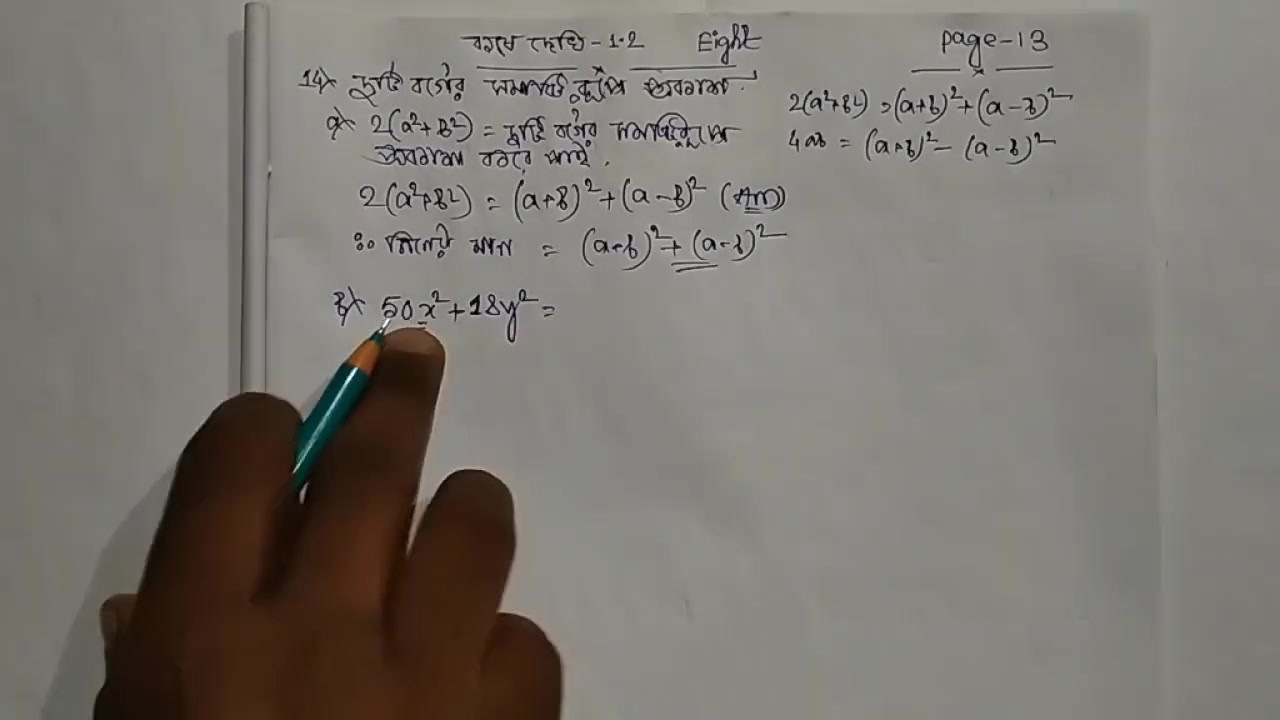 কষে দেখি - 1.2 Eight page-13
14) দুটি বর্গের সমষ্টি রূপে প্রকাশ
a) 2(a²+b²) = দুটি বর্গের সমষ্টিরূপে
প্রকাশ করতে পাই.
2(a²+b²) = (a+b)²+(a-b)² (Ans)
∴ নির্ণেয় মান = (a+b)²+(a-b)²
b) 50x²+18y² =
2(a²+b²) = (a+b)²+(a-b)²
4ab = (a+b)² - (a-b)²